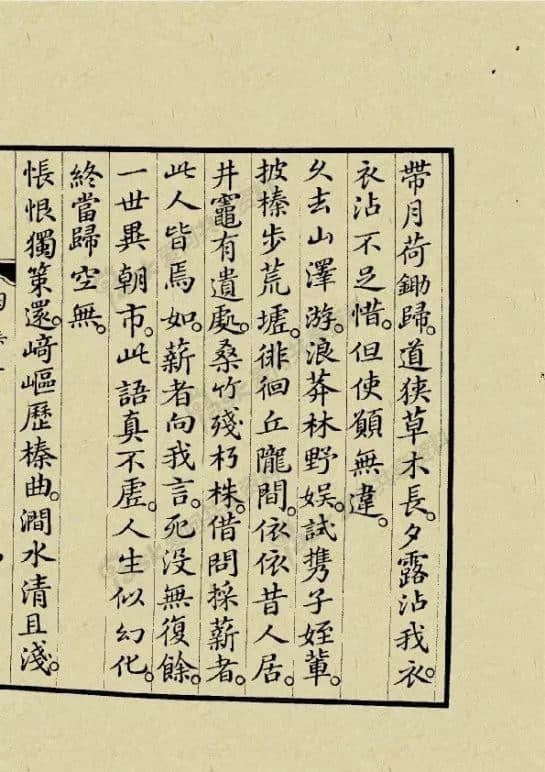 帶月荷鋤歸。道狹草木長。夕露沾我衣。
衣沾不足惜。但使願無違。
久去山澤游。浪莽林野娛。試携子姪輩。
披榛步荒墟。徘徊丘隴間。依依昔人居。
井竈有遺處。桑竹殘朽株。借問採薪者。
此人皆焉如。薪者向我言。死没無復餘。
一世異朝市。此語真不虛。人生似幻化。
終當歸空無。
悵恨獨策還。崎嶇歷榛曲。澗水清且淺。